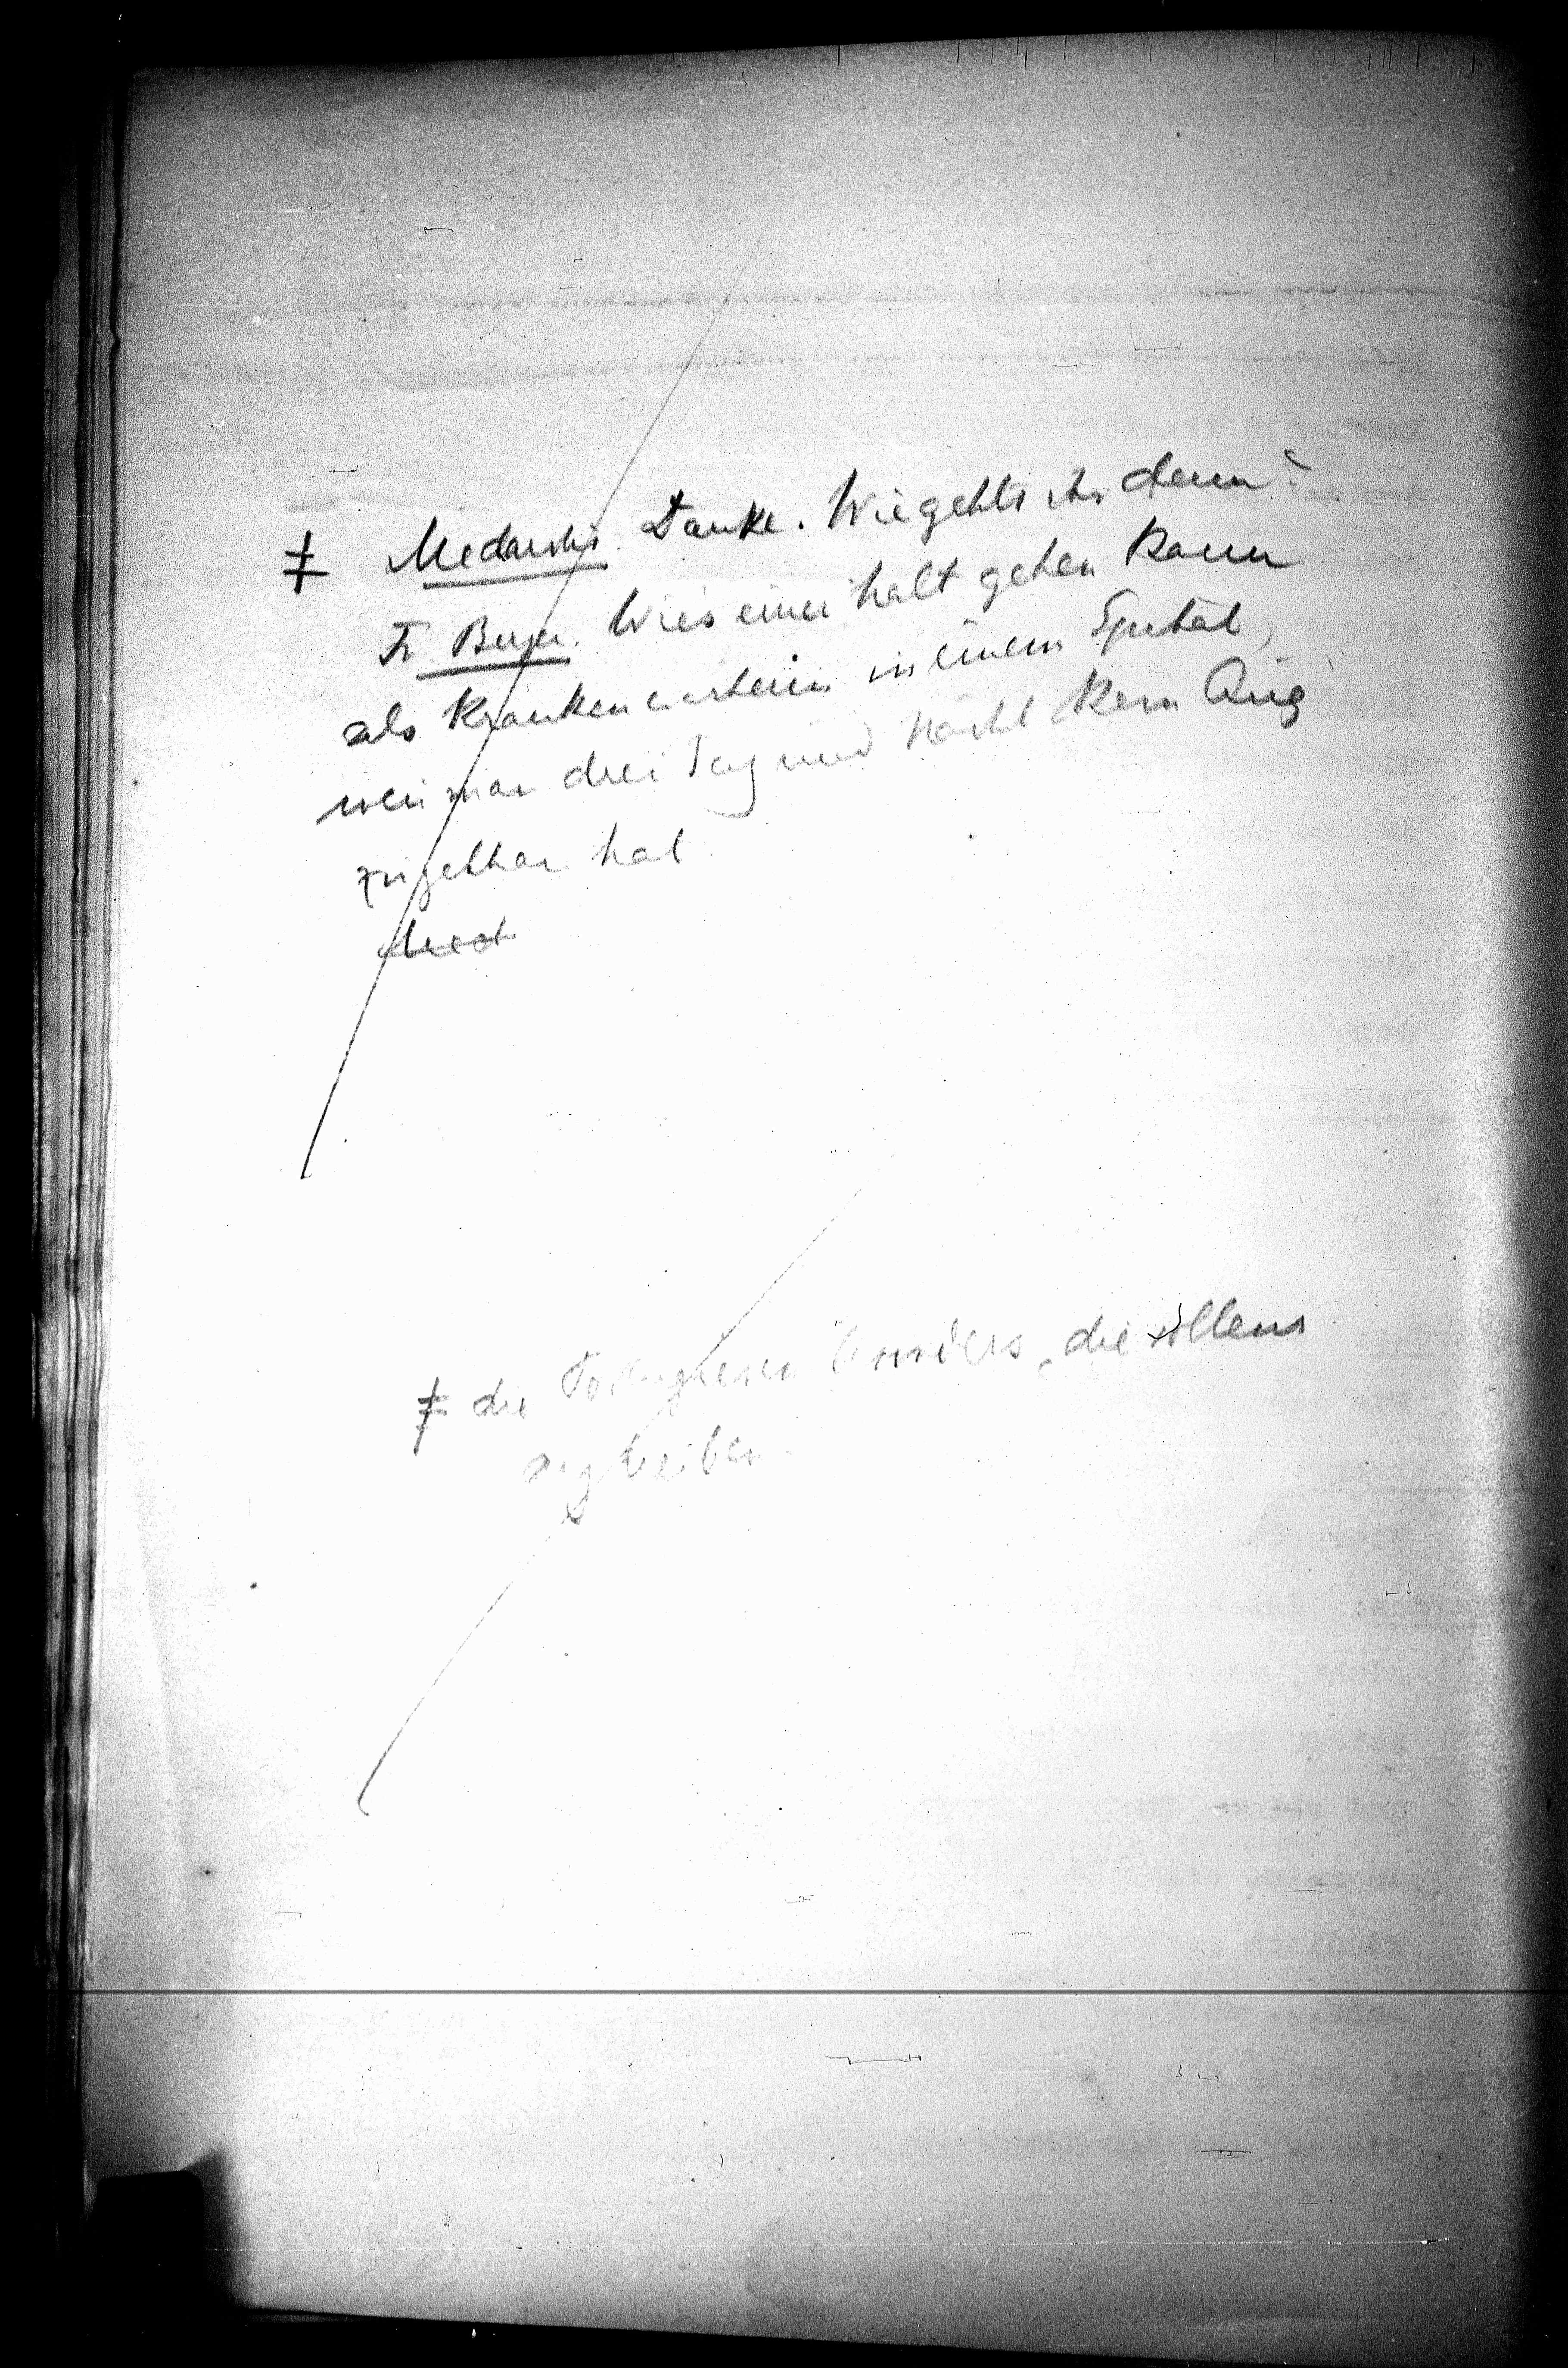 ‡ Medardus. Danke. Wie gehts ihr denn?
Fr Berger. Wies einer halt gehen kann
als Krankenwärterin in einem Spital,
wen man drei Tag und Nächt kein Aug
zugethan hat
‡ die , die wollens